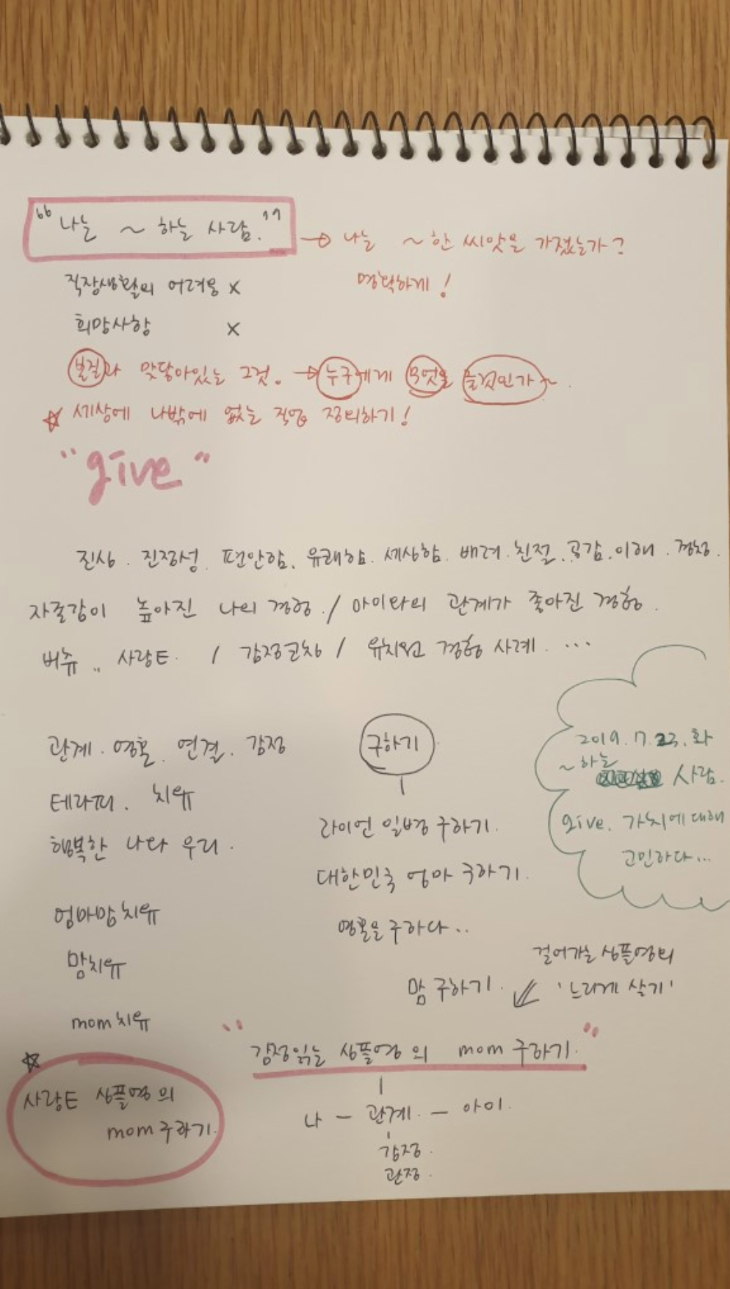 "나는 ~ 하는 사람."
→ 나는 ~한 씨앗을 가졌는가?
명확하게!
직장생활의 어려움 x
희망사항 x
본질과 맞닿아있는 그것. → 누구에게 무엇을 줄것인가~.
☆ 세상에 나밖에 없는 직업 정의하기!
"give"
진심. 진정성. 편안함. 유쾌함. 세심함. 배려. 친절. 공감. 이해. 경청.
자존감이 높아진 나의 경험. / 아이와의 관계가 좋아진 경험.
버츄.. 사랑E. / 감정코칭 / 유치원 경험 사례. ...
관계. 영혼. 연결. 감정
테라피. 치유
행복한 나와 우리.
엄마맘치유
맘치유
mom치유
☆
사랑E 심플영의
mom구하기
구하기
라이언 일병 구하기.
대한민국 엄마 구하기.
영혼을 구하다..
맘 구하기.
2019.7.23.화
~하는 사람.
give. 가치에 대해
고민하다...
걸어가는 심플영의
'느리게 살기'
"감정읽는 심플영의 mom구하기."
나 - 관계. - 아이.
감정.